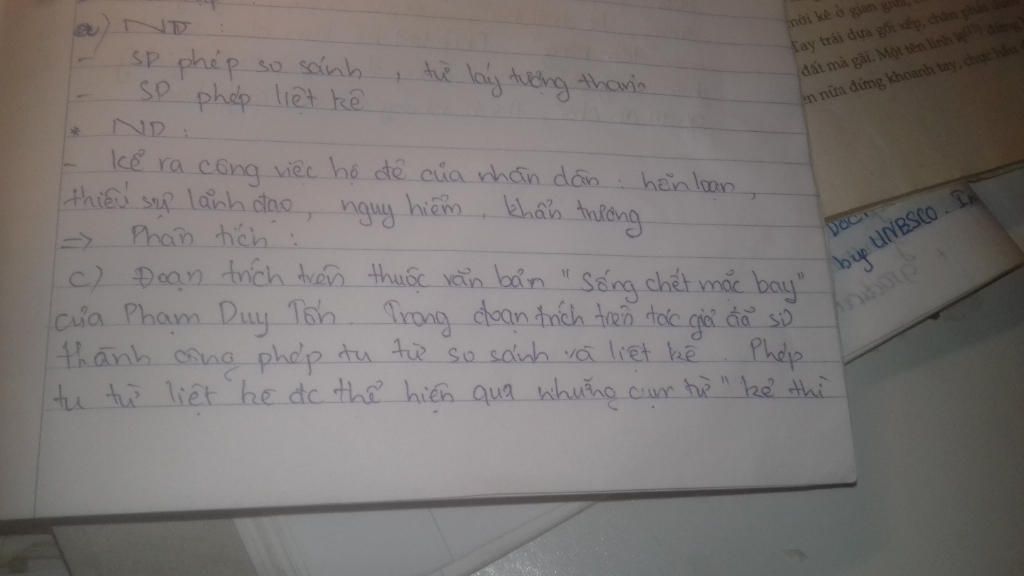 a) ND :
- SD phép so sánh , từ láy tượng thanh
- SD phép liệt kê
* ND :
- kể ra công việc hộ đê của nhân dân : hỗn loạn ,
thiếu sự lãnh đạo , nguy hiểm , khẩn trương
=> Phân tích :
c) Đoạn trích trên thuộc văn bản " Sống chết mặc bay "
của Phạm Duy Tốn . Trong đoạn trích trên tác giả đã sử
thành công phép tu từ so sánh và liệt kê . Phép
tu từ liệt kê đc thể hiện qua những cụm từ " kẻ thì
kẻ ở gian giữa,
tay trái dựa gối xếp, chân phải duỗi
đất mà gãi. Một tên lính lệ đứng
nữa đứng khoanh tay, chực hầu
by UNESCO .